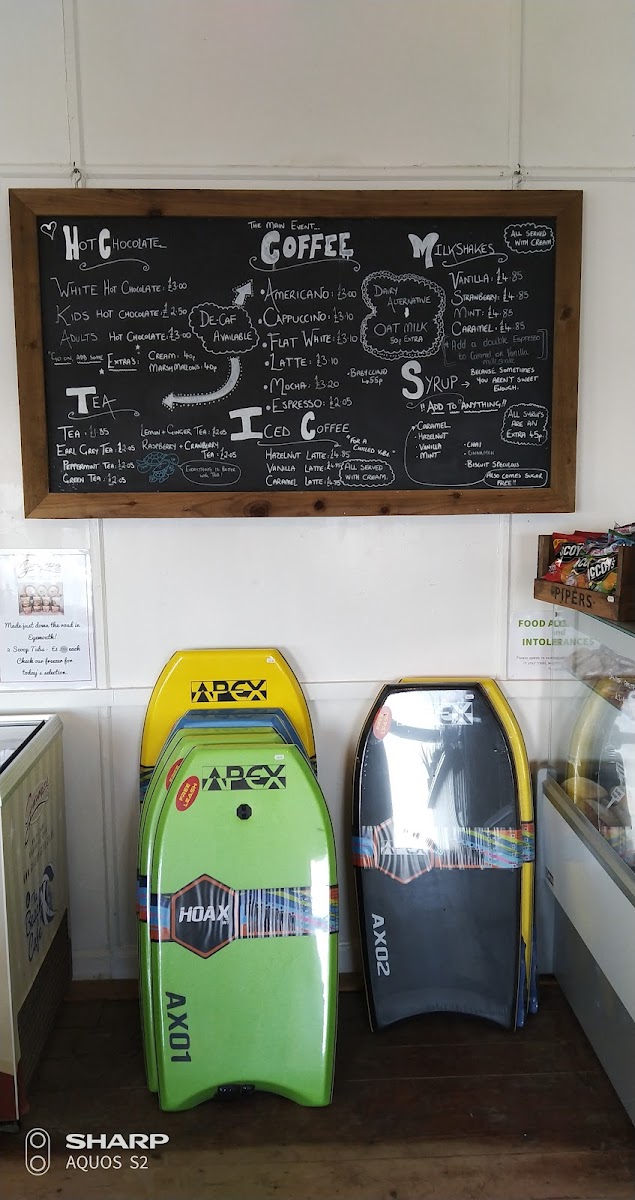 Hot Chocolate
White Hot Chocolate: £3.00
Kids Hot Chocolate: £2.50
Adults Hot Chocolate: £3.00
"Go on, add some
Extras: Cream: 40p
Marshmallows: 40p
De-caf
Available
Tea
Tea: £1.85
Earl Grey Tea: £2.05
Peppermint Tea: £2.05
Green Tea: £2.05
Lemon + Ginger Tea: £2.05
Raspberry + Cranberry
Tea: £2.05
Everything is better
with Tea!
The Main Event...
Coffee
Americano: £3.00
Cappuccino: £3.10
Flat White: £3.10
Latte: £3.10
Mocha: £3.20
Espresso: £2.05
Babyccino
55p
Dairy
Alternative
Oat Milk
50p Extra
Iced Coffee
"For a
chilled vibe"
Hazelnut Latte: £4.95
Vanilla Latte
Caramel Latte:
All served
with cream
Milkshakes
All served
with cream
Vanilla: £4.85
Strawberry: £4.85
Mint: £4.85
Caramel: £4.85
Add a double espresso
to Caramel or Vanilla
milkshake
Syrup → Because sometimes
you aren't sweet
enough.
!! Add to "Anything" !!
Caramel
Hazelnut
Vanilla
Mint
Chai
Cinnamon
Biscuit Speculoos
All syrups
are an
extra 45p
Also comes sugar
free!!
Made just down the road in
Eyemouth!
Scoop Tubs - each
Check our freezer for
today's selection.
McCOY'S
PIPERS
FOOD
and
INTOLERANCES
APEX
APEX
FREE
LEASH
HOAX
AX01
EX
AX02
SHARP
AQUOS S2